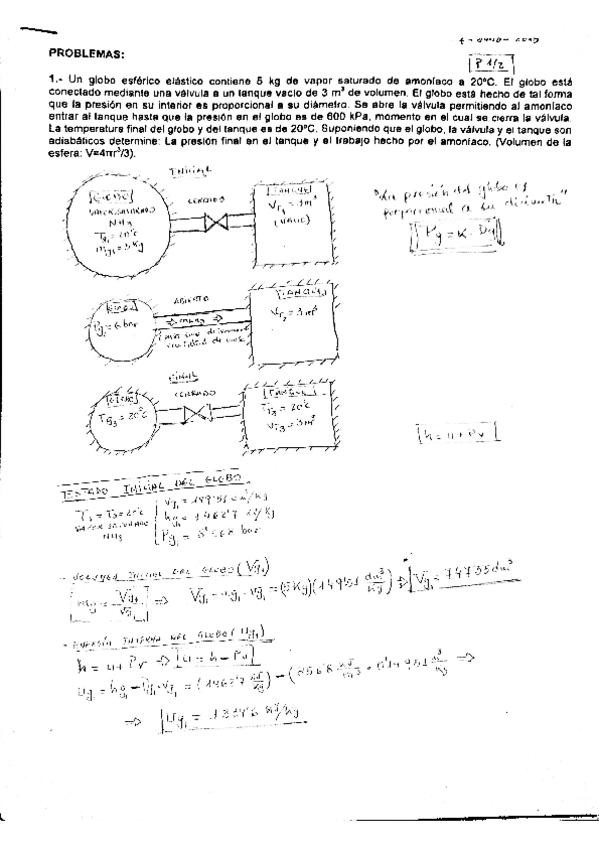 P 1/2
PROBLEMAS:
1.- Un globo esférico elástico contiene 5 kg de vapor saturado de amoníaco a 20ºC. El globo está
conectado mediante una válvula a un tanque vacío de 3 m³ de volumen. El globo está hecho de tal forma
que la presión en su interior es proporcional a su diámetro. Se abre la válvula permitiendo al amoníaco
entrar al tanque hasta que la presión en el globo es de 600 kPa, momento en el cual se cierra la válvula.
La temperatura final del globo y del tanque es de 20ºC. Suponiendo que el globo, la válvula y el tanque son
adiabáticos determine: La presión final en el tanque y el trabajo hecho por el amoníaco. (Volumen de la
esfera: V=4πr³/3).
INICIAL
[GLOBO]
NH₃
T₁ = 20ºC
m = 5 Kg
CERRADO
[TANQUE]
V_T₁ = 3m³
(VACÍO)
"La presión del globo es
proporcional a su diámetro"
P_g = K · D_g
ABIERTO
[GLOBO]
P_g = 6 bar
[TANQUE]
V_T₂ = 3m³
FINAL
CERRADO
[GLOBO]
T_g₃ = 20ºC
[TANQUE]
T_T₃ = 20ºC
V_T₃ = 3m³
[h = u + Pv]
ESTADO INICIAL DEL GLOBO
T₁ = 20ºC
VAPOR SATURADO
NH₃
v_g₁ = 149'51 dm³/kg
h_g₁ = 1462'7 KJ/Kg
P_g₁ = 8'568 bar
- VOLUMEN INICIAL DEL GLOBO (V_g₁)
⇒ V_g₁ = m_g₁ · v_g₁ = (5Kg)(149'51 dm³/kg) ⇒ V_g₁ = 747'55 dm³
- ENERGÍA INTERNA DEL GLOBO (U_g₁)
h = u + Pv ⇒ [u = h - Pv]
⇒ U_g₁ = 1334'6 KJ/kg